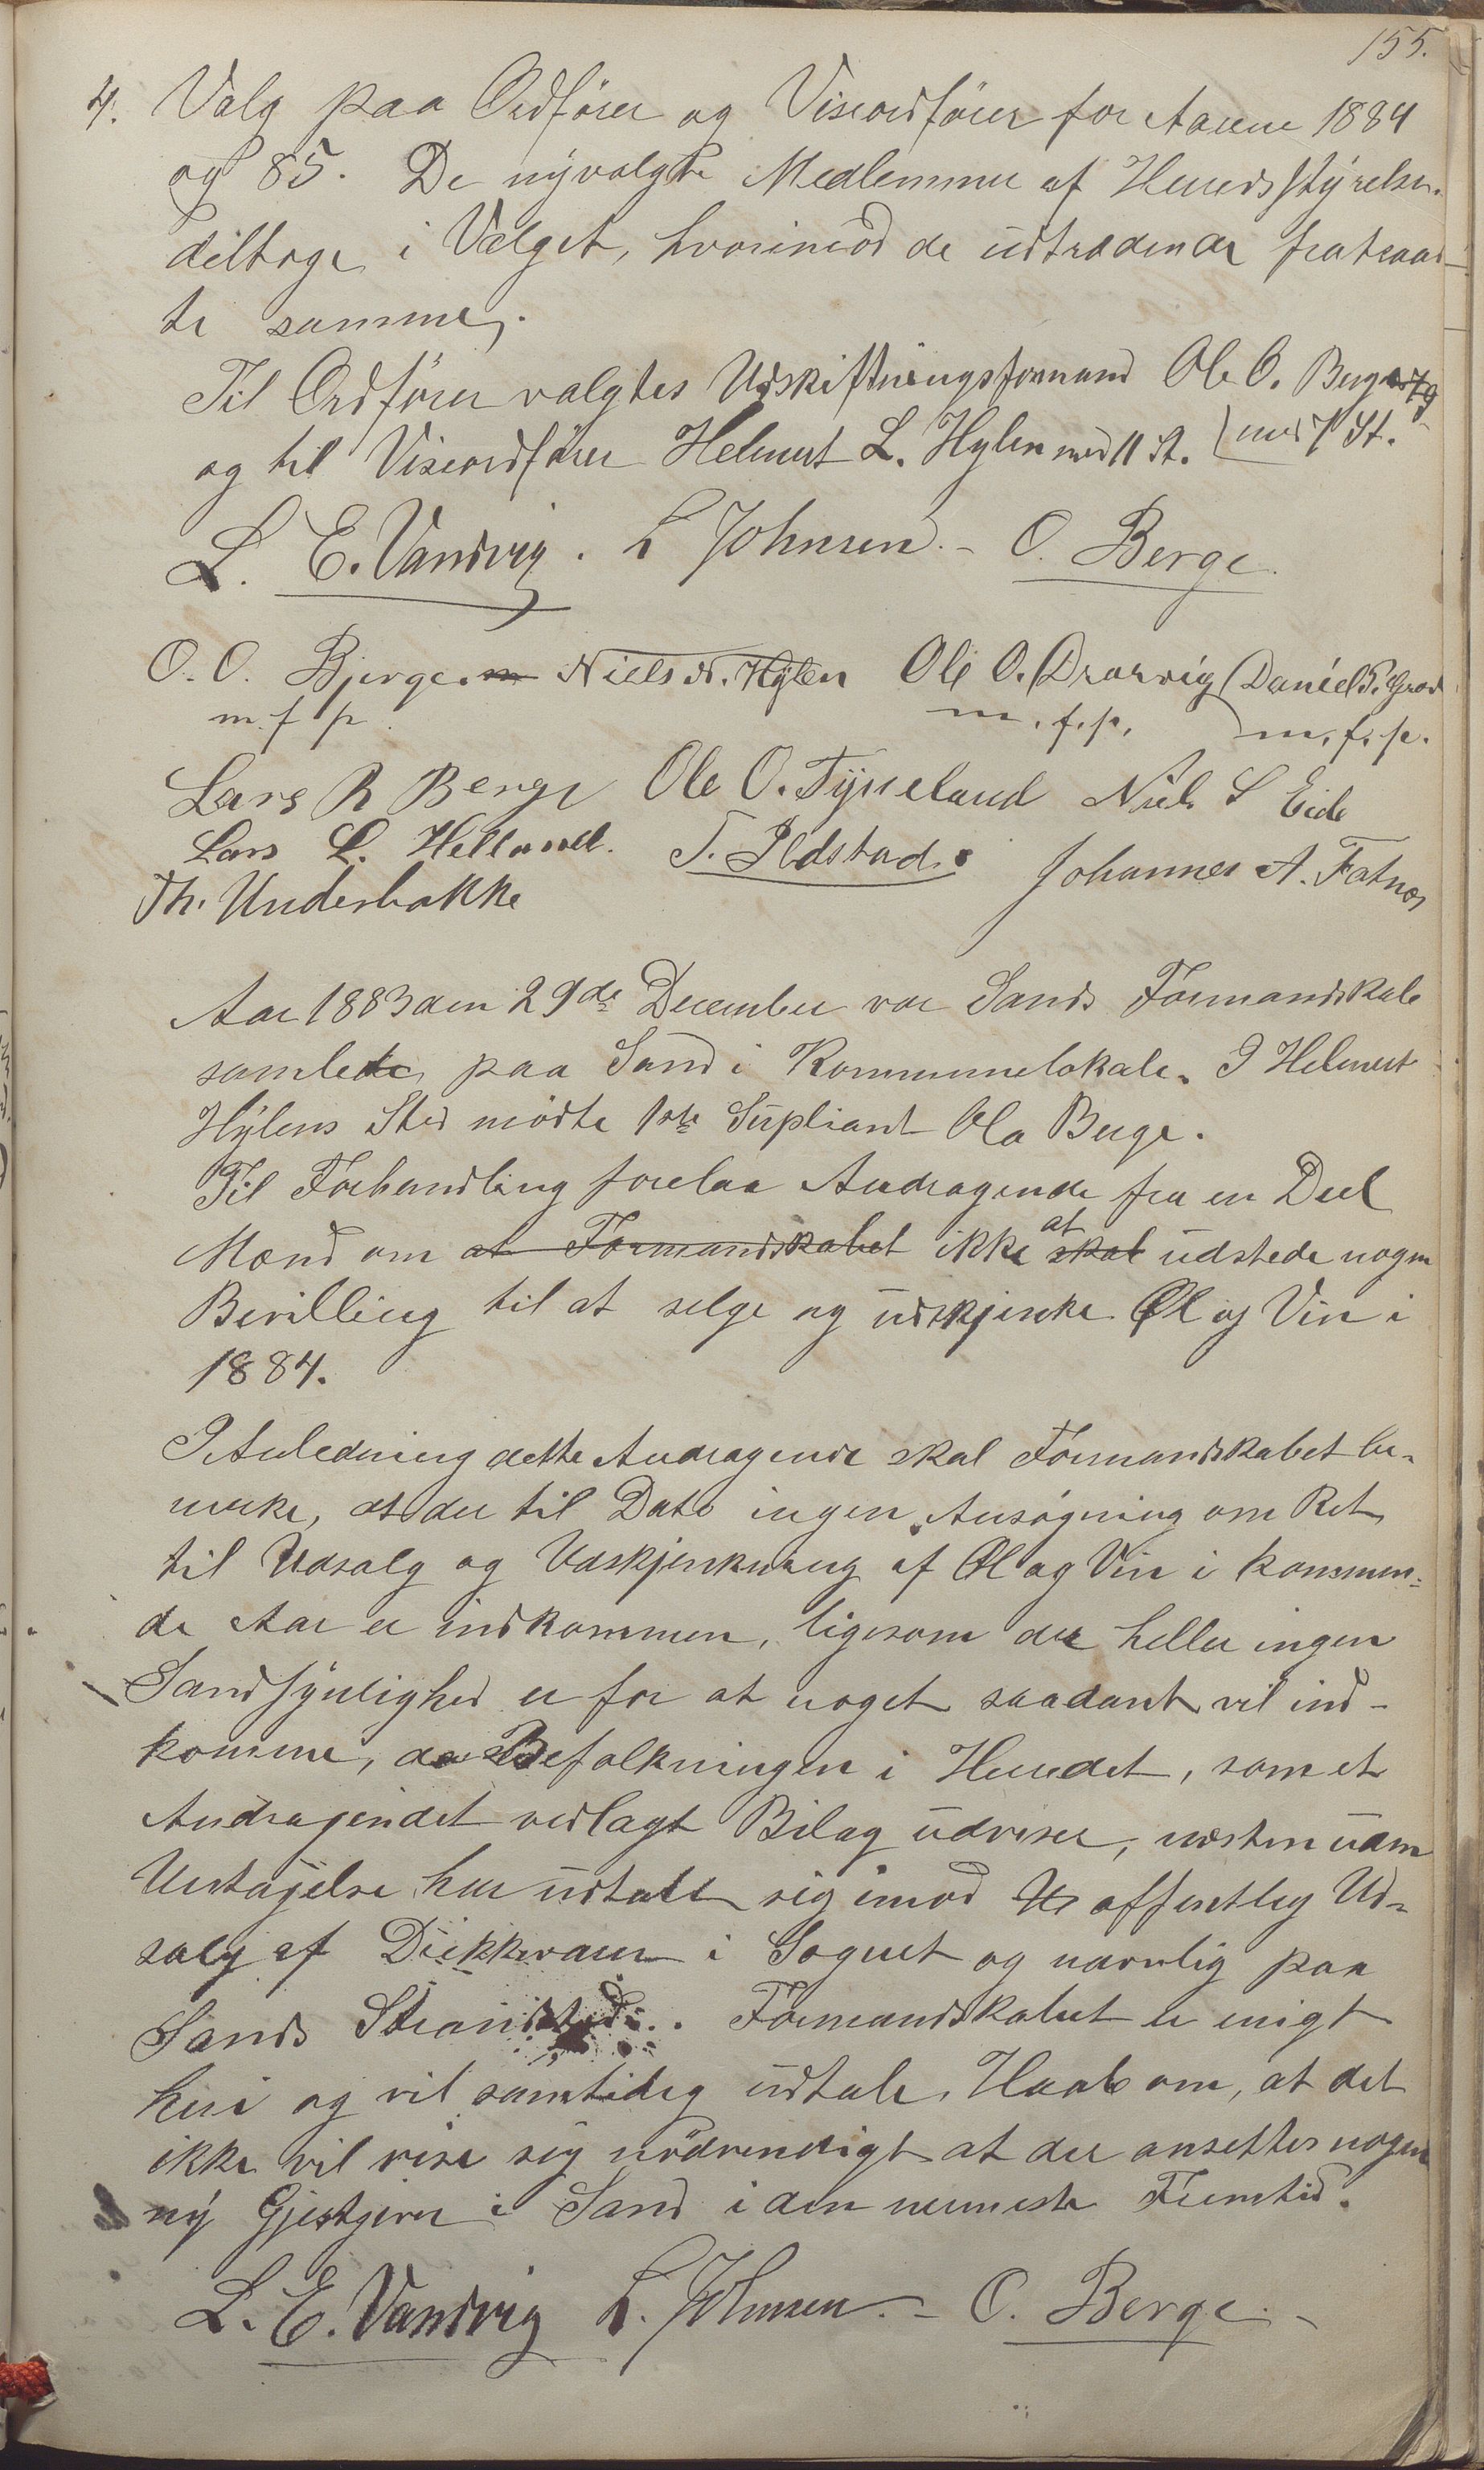 155.
4. Valg paa Ordfører og Viseordfører for Aarene 1884
og 85. De nyvalgte Medlemmer af Herredsstyrelsen
deltoge i Valget, hvorimod de udtrædende fratraad-
te samme.
Til Ordfører valgtes Udskiftningsformand Ole O. Berge
og til Viseordfører Helmert L. Hylen med 11 St. med St.
L. E. Vandvig. L Johnsen. - O. Berge.
O. O. Bjerge. Niels N. Hylen Ole O. Drarvig Daniel
m. f p. m. f. p. m. f. p.
Lars R Berge Ole O. Tysseland Niels S Eide
Lars L. Helland. T. Ildstad. Johannes A. Fatnes
Th. Underbakke
Aar 1883 den 29de December var Sands Formandskab
samlede paa Sand i Kommunelokale. I Helmert
Hylens Sted mødte 1ste Supliant Ola Berge.
Til Forhandling forelaa Andragende fra en Deel
Mænd om at Formandskabet ikke at skal udstede nogen
Bevilling til at selge og udskjenke Øl og Vin i
1884.
I Anledning dette Andragende skal Formandskabet be-
merke, at der til Dato ingen Ansøgning om Ret
til Udsalg og Udskjenkning af Øl og Vin i kommen-
de Aar er indkommen, ligesom der heller ingen
Sandsynlighed er for at noget saadant vil ind-
komme, da Befolkningen i Herredet, som et
Andragendet vedlagt Bilag udviser, nesten uden
Undtagelse har udtalt sig imod offentlig Ud-
salg af Drikkevarer i Sognet og navnlig paa
Sands Strandsted. Formandskabet er enigt
heri og vil samtidig udtale Haab om, at det
ikke vil vise sig nødvendigt at der ansettes nogen
ny Gjestgiver i Sand i den nermeste Fremtid.
L. E. Vandvig L. Johnsen. - O. Berge. -